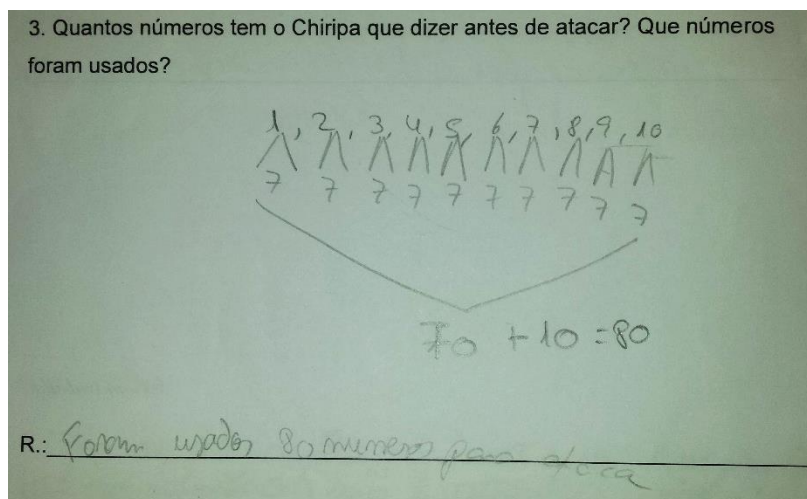 3. Quantos números tem o Chiripa que dizer antes de atacar? Que números
foram usados?
1, 2, 3, 4, 5, 6, 7, 8, 9, 10
7 7 7 7 7 7 7 7 7 7
70 + 10 = 80
R.: Foram usados 80 numeros para ataca